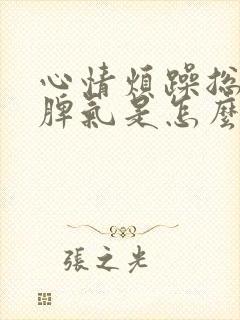 心情煩躁總
脾氣是怎麼
張之光